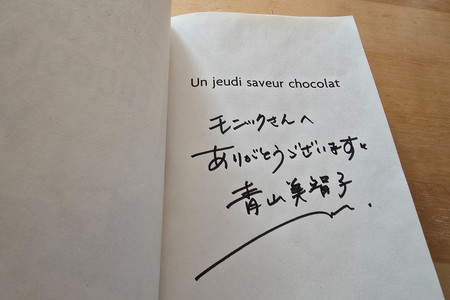 Un jeudi saveur chocolat
モニックさんへ
ありがとうございます。
青山美智子